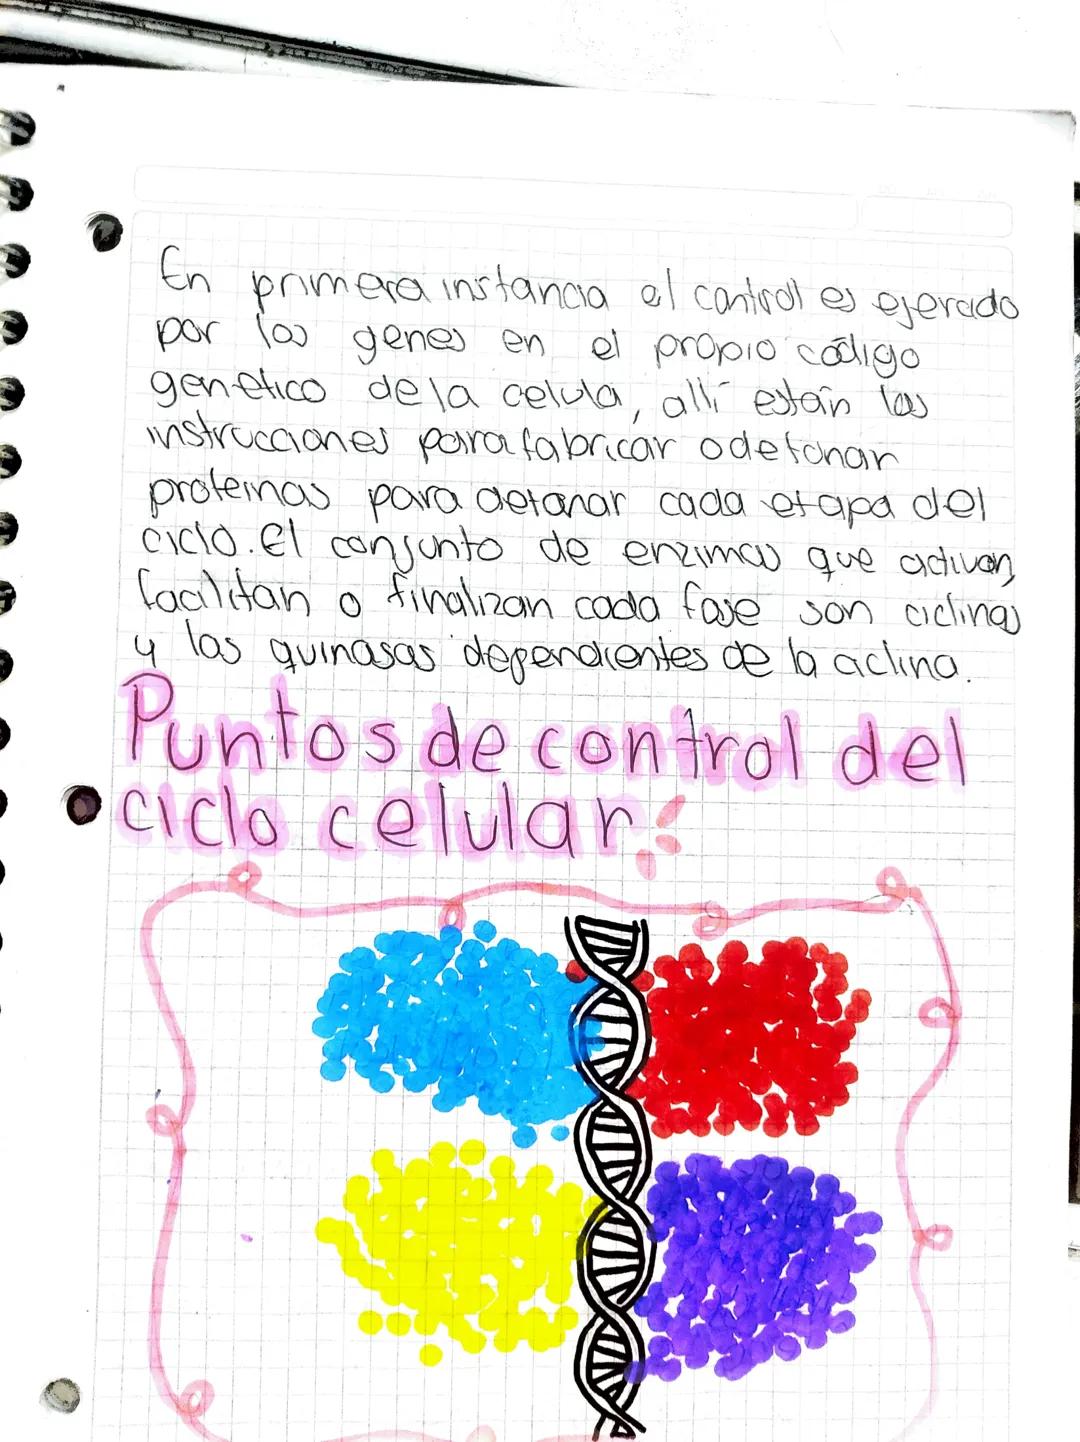 En primera instancia el control es ejercido
por los genes en el propio código
genetico de la celula, allí están las
instrucciones para fabricar o detonar
proteinas para detonar cada etapa del
ciclo. El conjunto de enzimas que activan,
facilitan o finalizan cada fase son ciclinas
y las quinasas dependientes de la ciclina.
Puntos de control del
ciclo celular